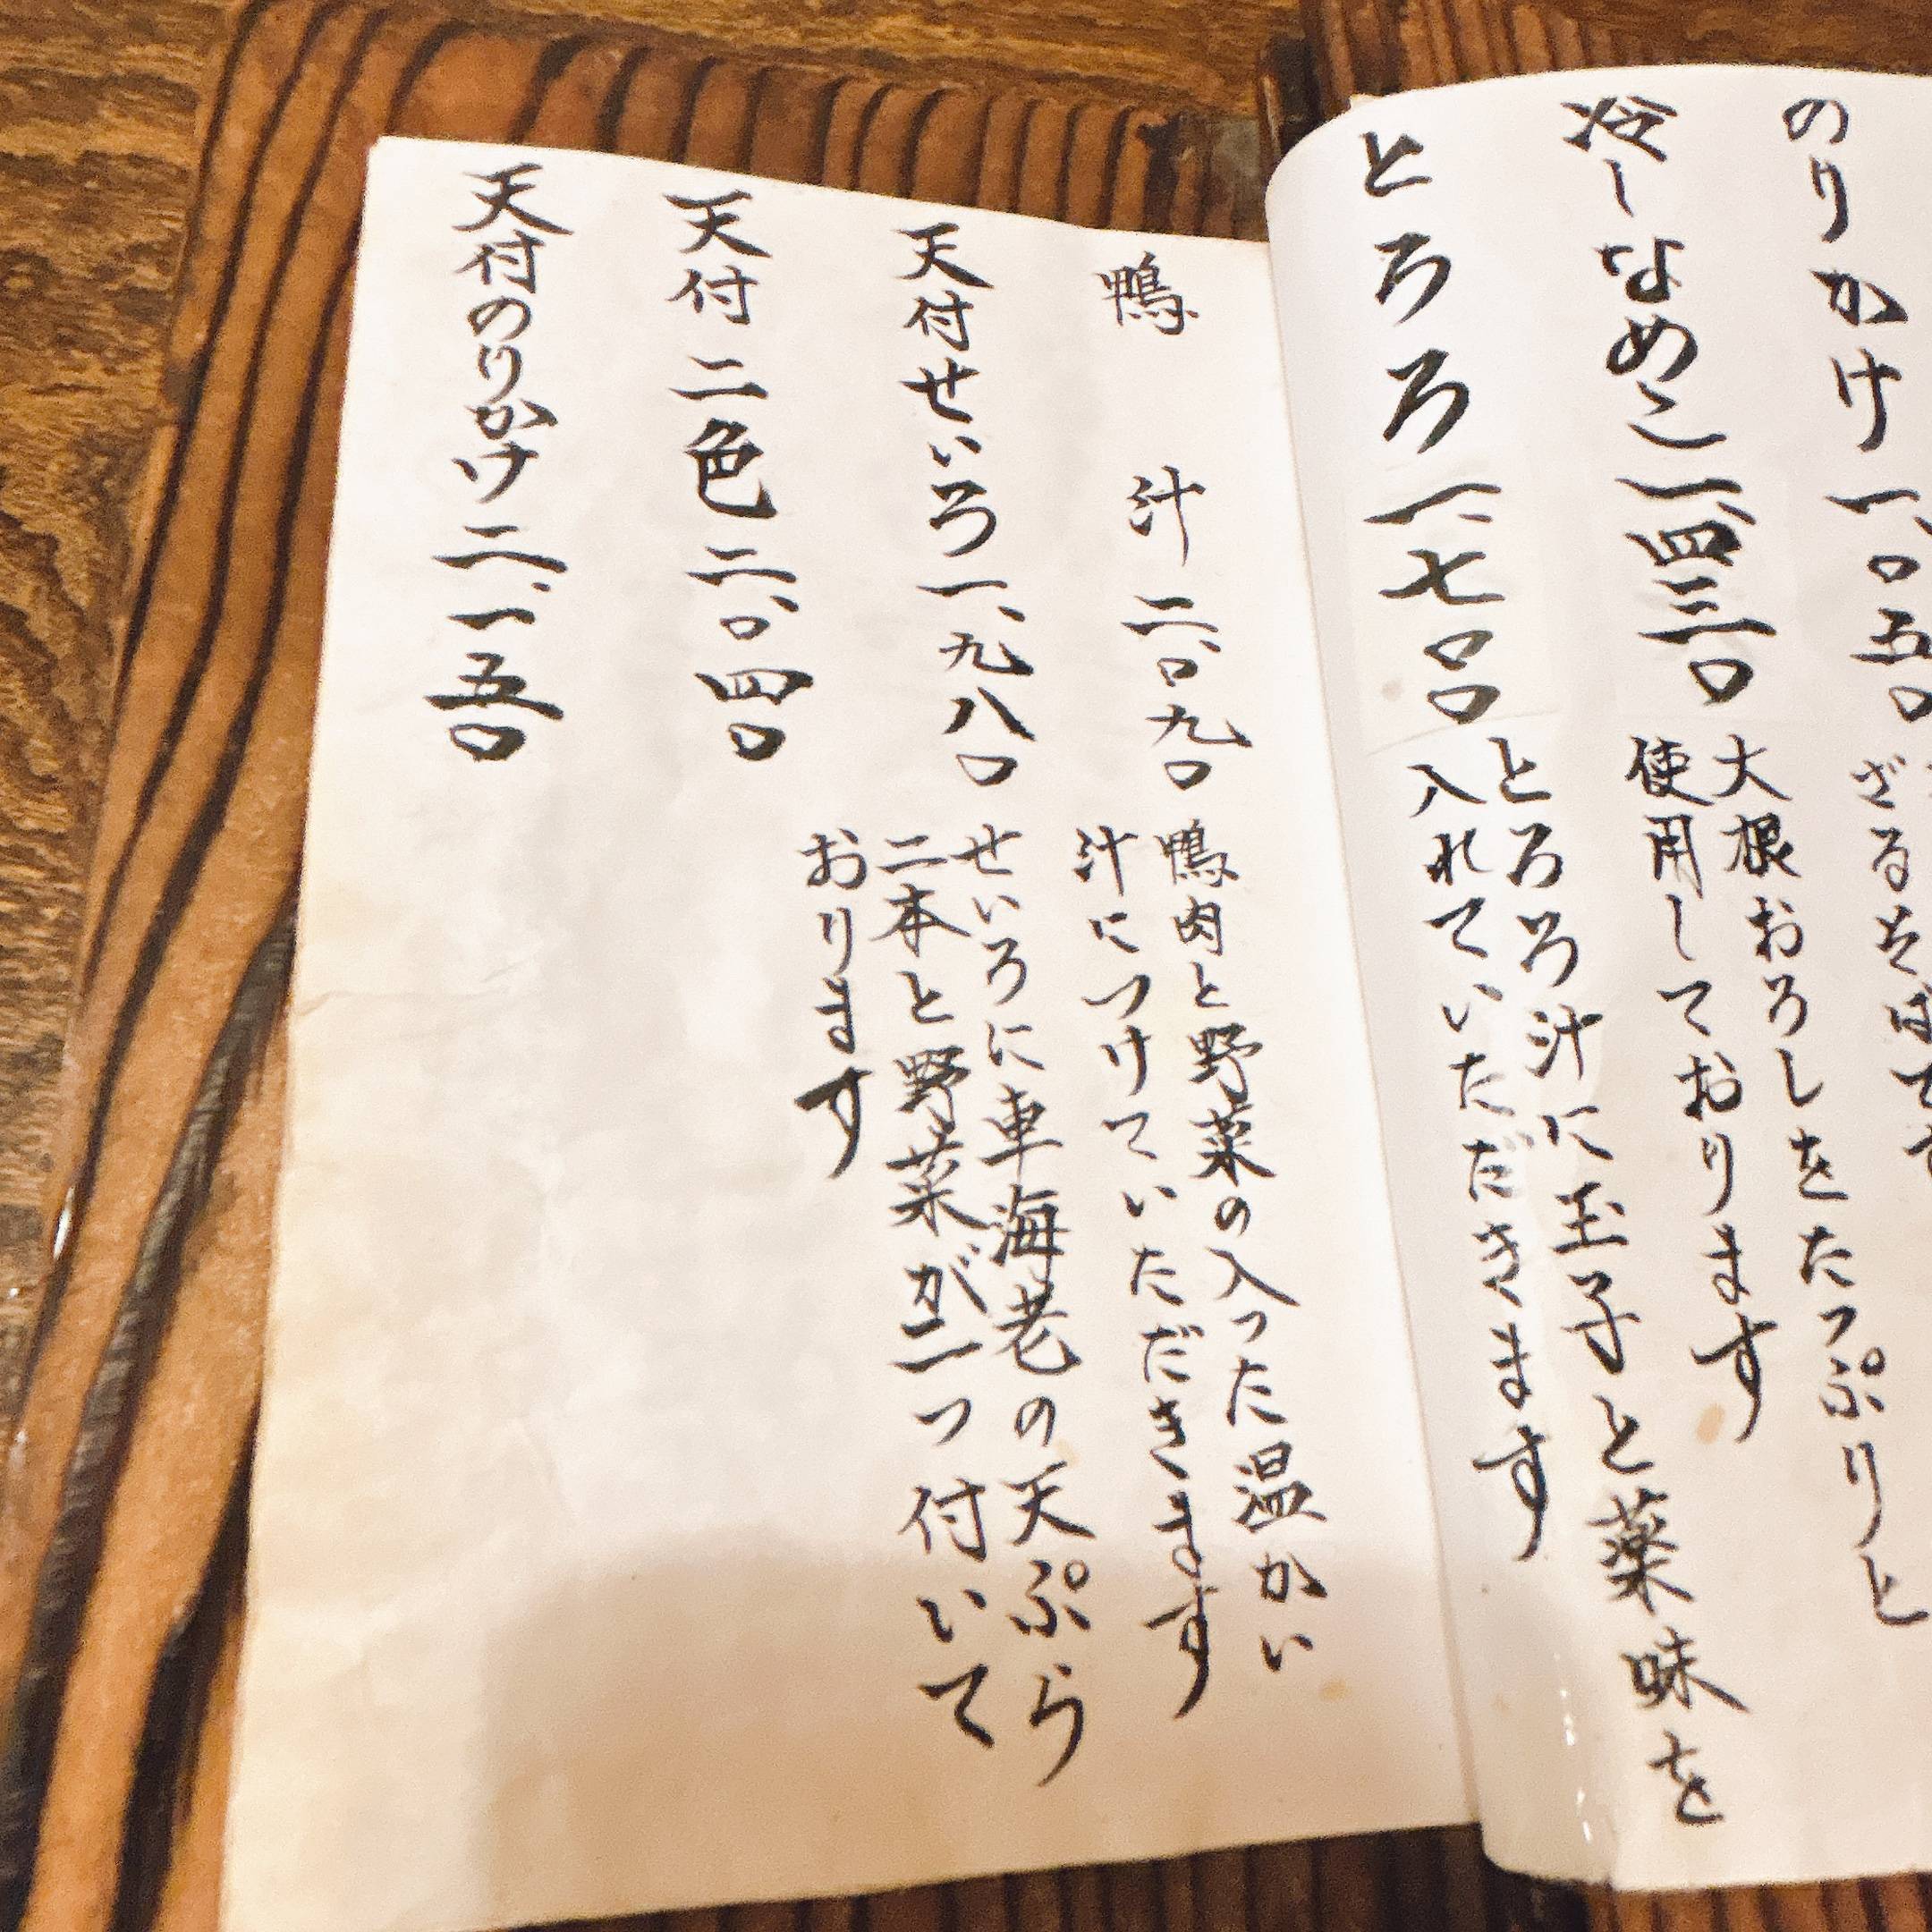 のりかけ 一、〇五〇
ざるそばです
冷しなめこ 一、四三〇
大根おろしをたっぷりと
使用しております
とろろ 一、七〇〇
とろろ汁に玉子と薬味を
入れていただきます
鴨 汁 二、〇九〇
鴨肉と野菜の入った温かい
汁につけていただきます
天付せいろ 一、九八〇
せいろに車海老の天ぷら
二本と野菜が一つ付いて
おります
天付二色 二、〇四〇
天付のりかけ 二、一五〇